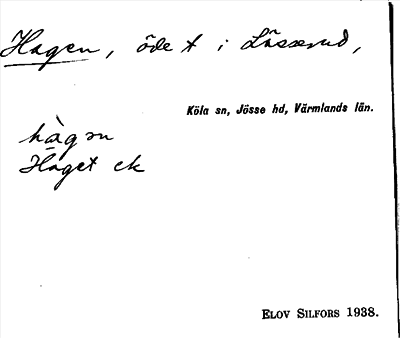 Hagen, öde t i Lässerud,
Köla sn, Jösse hd, Värmlands län.
hàgən
Haget ek
ELOV SILFORS 1938.